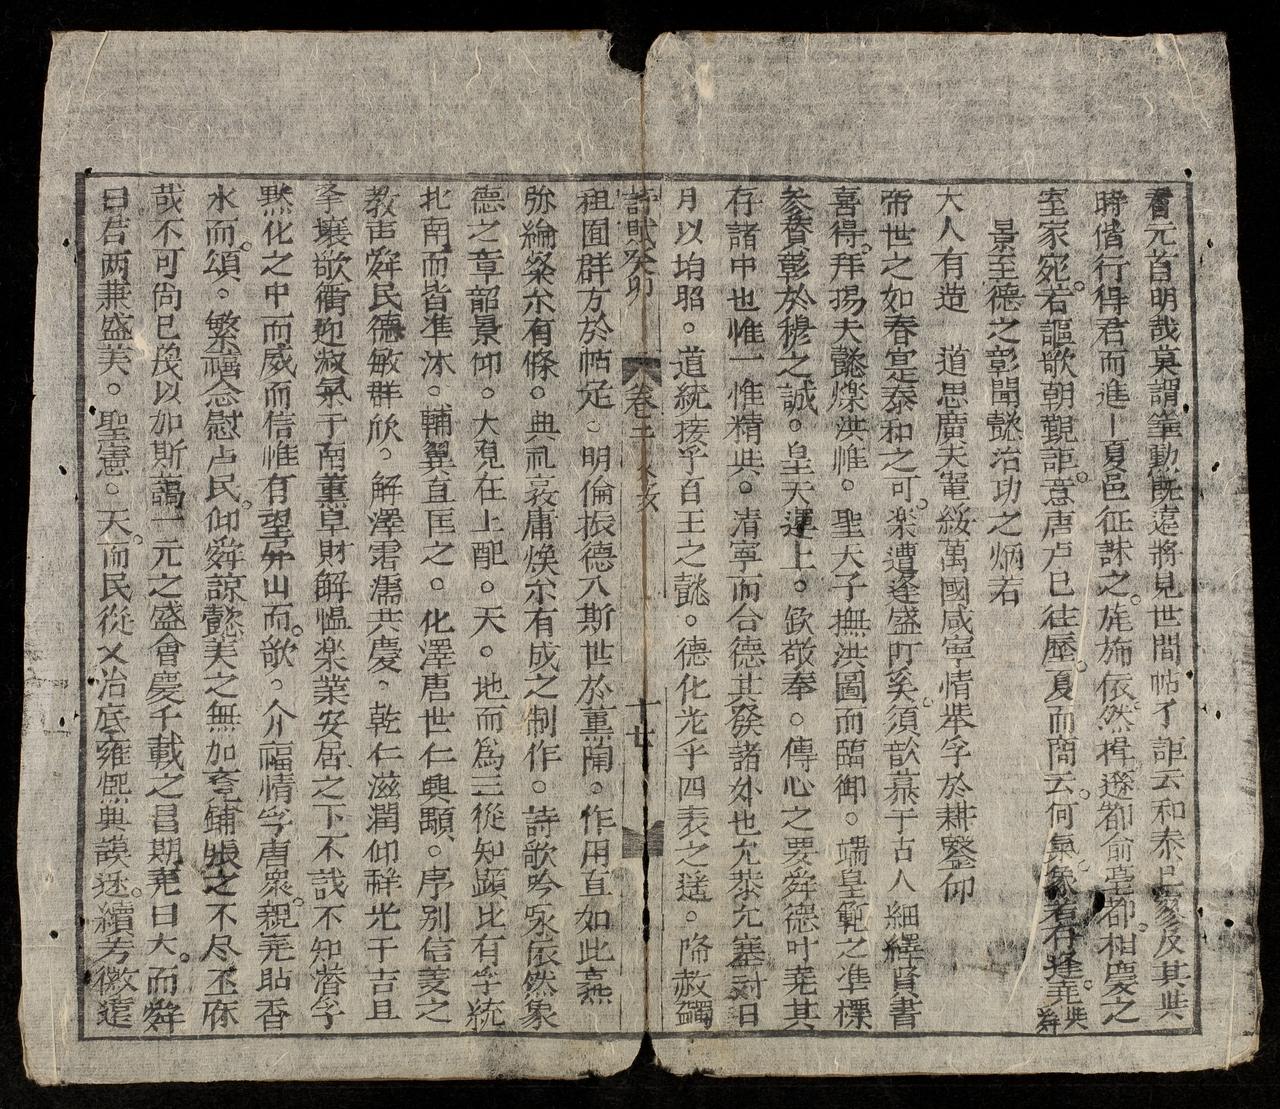 看元首明哉莫謂華勳既遠將見世間帖了詎云和泰且參反其𠀋
時偕行得君而進夏邑征誅之施施依然揖遜都俞亭都相慶之
室家宛若謳歌朝覲詎意唐卢已往歷夏而商云何氣象若有逢堯𠀋舜
景至德之彰聞懿治功之炳若
大人有造 道思廣夫 綏萬國咸寧情𠀋孚於耕鑿仰
帝世之如春寔泰和之可楽遭逢盛旿矣須歆慕于古人細繹賢書
喜得拜揚夫懿爍洪惟聖天子撫洪圖而臨御端皇範之準標
參賛彰於穆之誠皇天運上欽敬奉傳心之要舜德叶堯其
存諸中也惟一惟精𠀋清寧而合德其發諸外也允恭允塞對日
月以均昭道統接乎百王之懿德化光乎四表之遥降赦蠲
詩賦癸卯 卷二 癸亥 十七
祖囿群方於帖足明倫振德入斯世於薫陶作用直如此
弥綸燦尔有條典礼衷庸煥尔有成之制作詩歌吟咏依然象
德之章韶景仰大覔在上配天地而為三從知顕比有孚統
北南而皆準沐輔翼直匡之化澤唐世仁興顒序別信羑之
教声舜民德敏群欣解澤霑濡共慶乾仁滋潤仰祥光于吉且
年壤歌衢迎淑氣于南薫阜財解愠楽業安居之下不識不知潜孚
黙化之中而威而信惟有望外山而歌介福情孚唐衆親堯貼香
水而頌繁禧念慰卢民仰舜諒懿美之無加寛鋪張之不尽丕庥
哉不可尚已茂以加斯謁一元之盛會慶千載之昌期堯曰大而舜
曰君两兼盛美聖憲天而民從乂治底雍熙典謨迹續芳徽遠